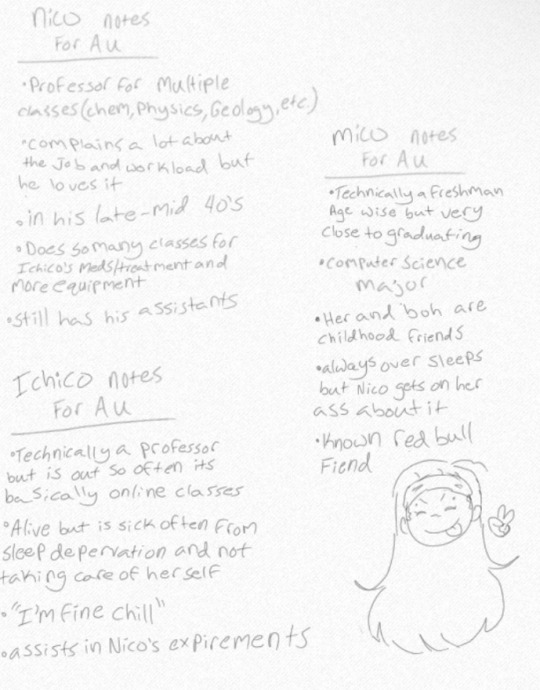 Nico notes
For Au
•Professor for Multiple
classes(chem,Physics,Geology,etc)
•complains a lot about
the Job and workload but
he loves it
•in his late-mid 40's
•Does so many classes for
Ichico's Meds/treatment and
More equipment
•still has his assistants
Ichico notes
For Au
•Technically a professor
but is out so often its
basically online classes
•Alive but is sick often from
sleep depervation and not
taking care of herself
•"I'm fine chill"
•assists in Nico's expirements
Mico notes
For Au
•Technically a freshman
Age wise but very
close to graduating
•computer science
major
•Her and boh are
childhood friends
•always over sleeps
but Nico gets on her
ass about it
•Known red bull
Fiend